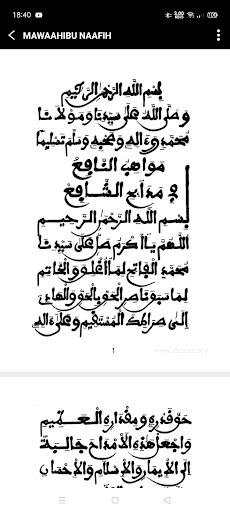 18:40
MAWAAHIBU NAAFIH
بسم الله الرحمن الرحيم
وصلى الله على سيدنا ومولانا
محمد وءاله وصحبه وسلم تسليما
مواهب النافع
في مدائح الشافع
بسم الله الرحمن الرحيم
اللهم يا أكرم صل على سيدنا
محمد الفاتح لما أغلق والخاتم
لما سبق ناصر الحق بالحق والهادي
إلى صراطك المستقيم وعلى ءاله
1
حق قدره ومقداره العظيم
واجعل هذه الأمداح جالبة
الإيمان والإسلام والإحسان